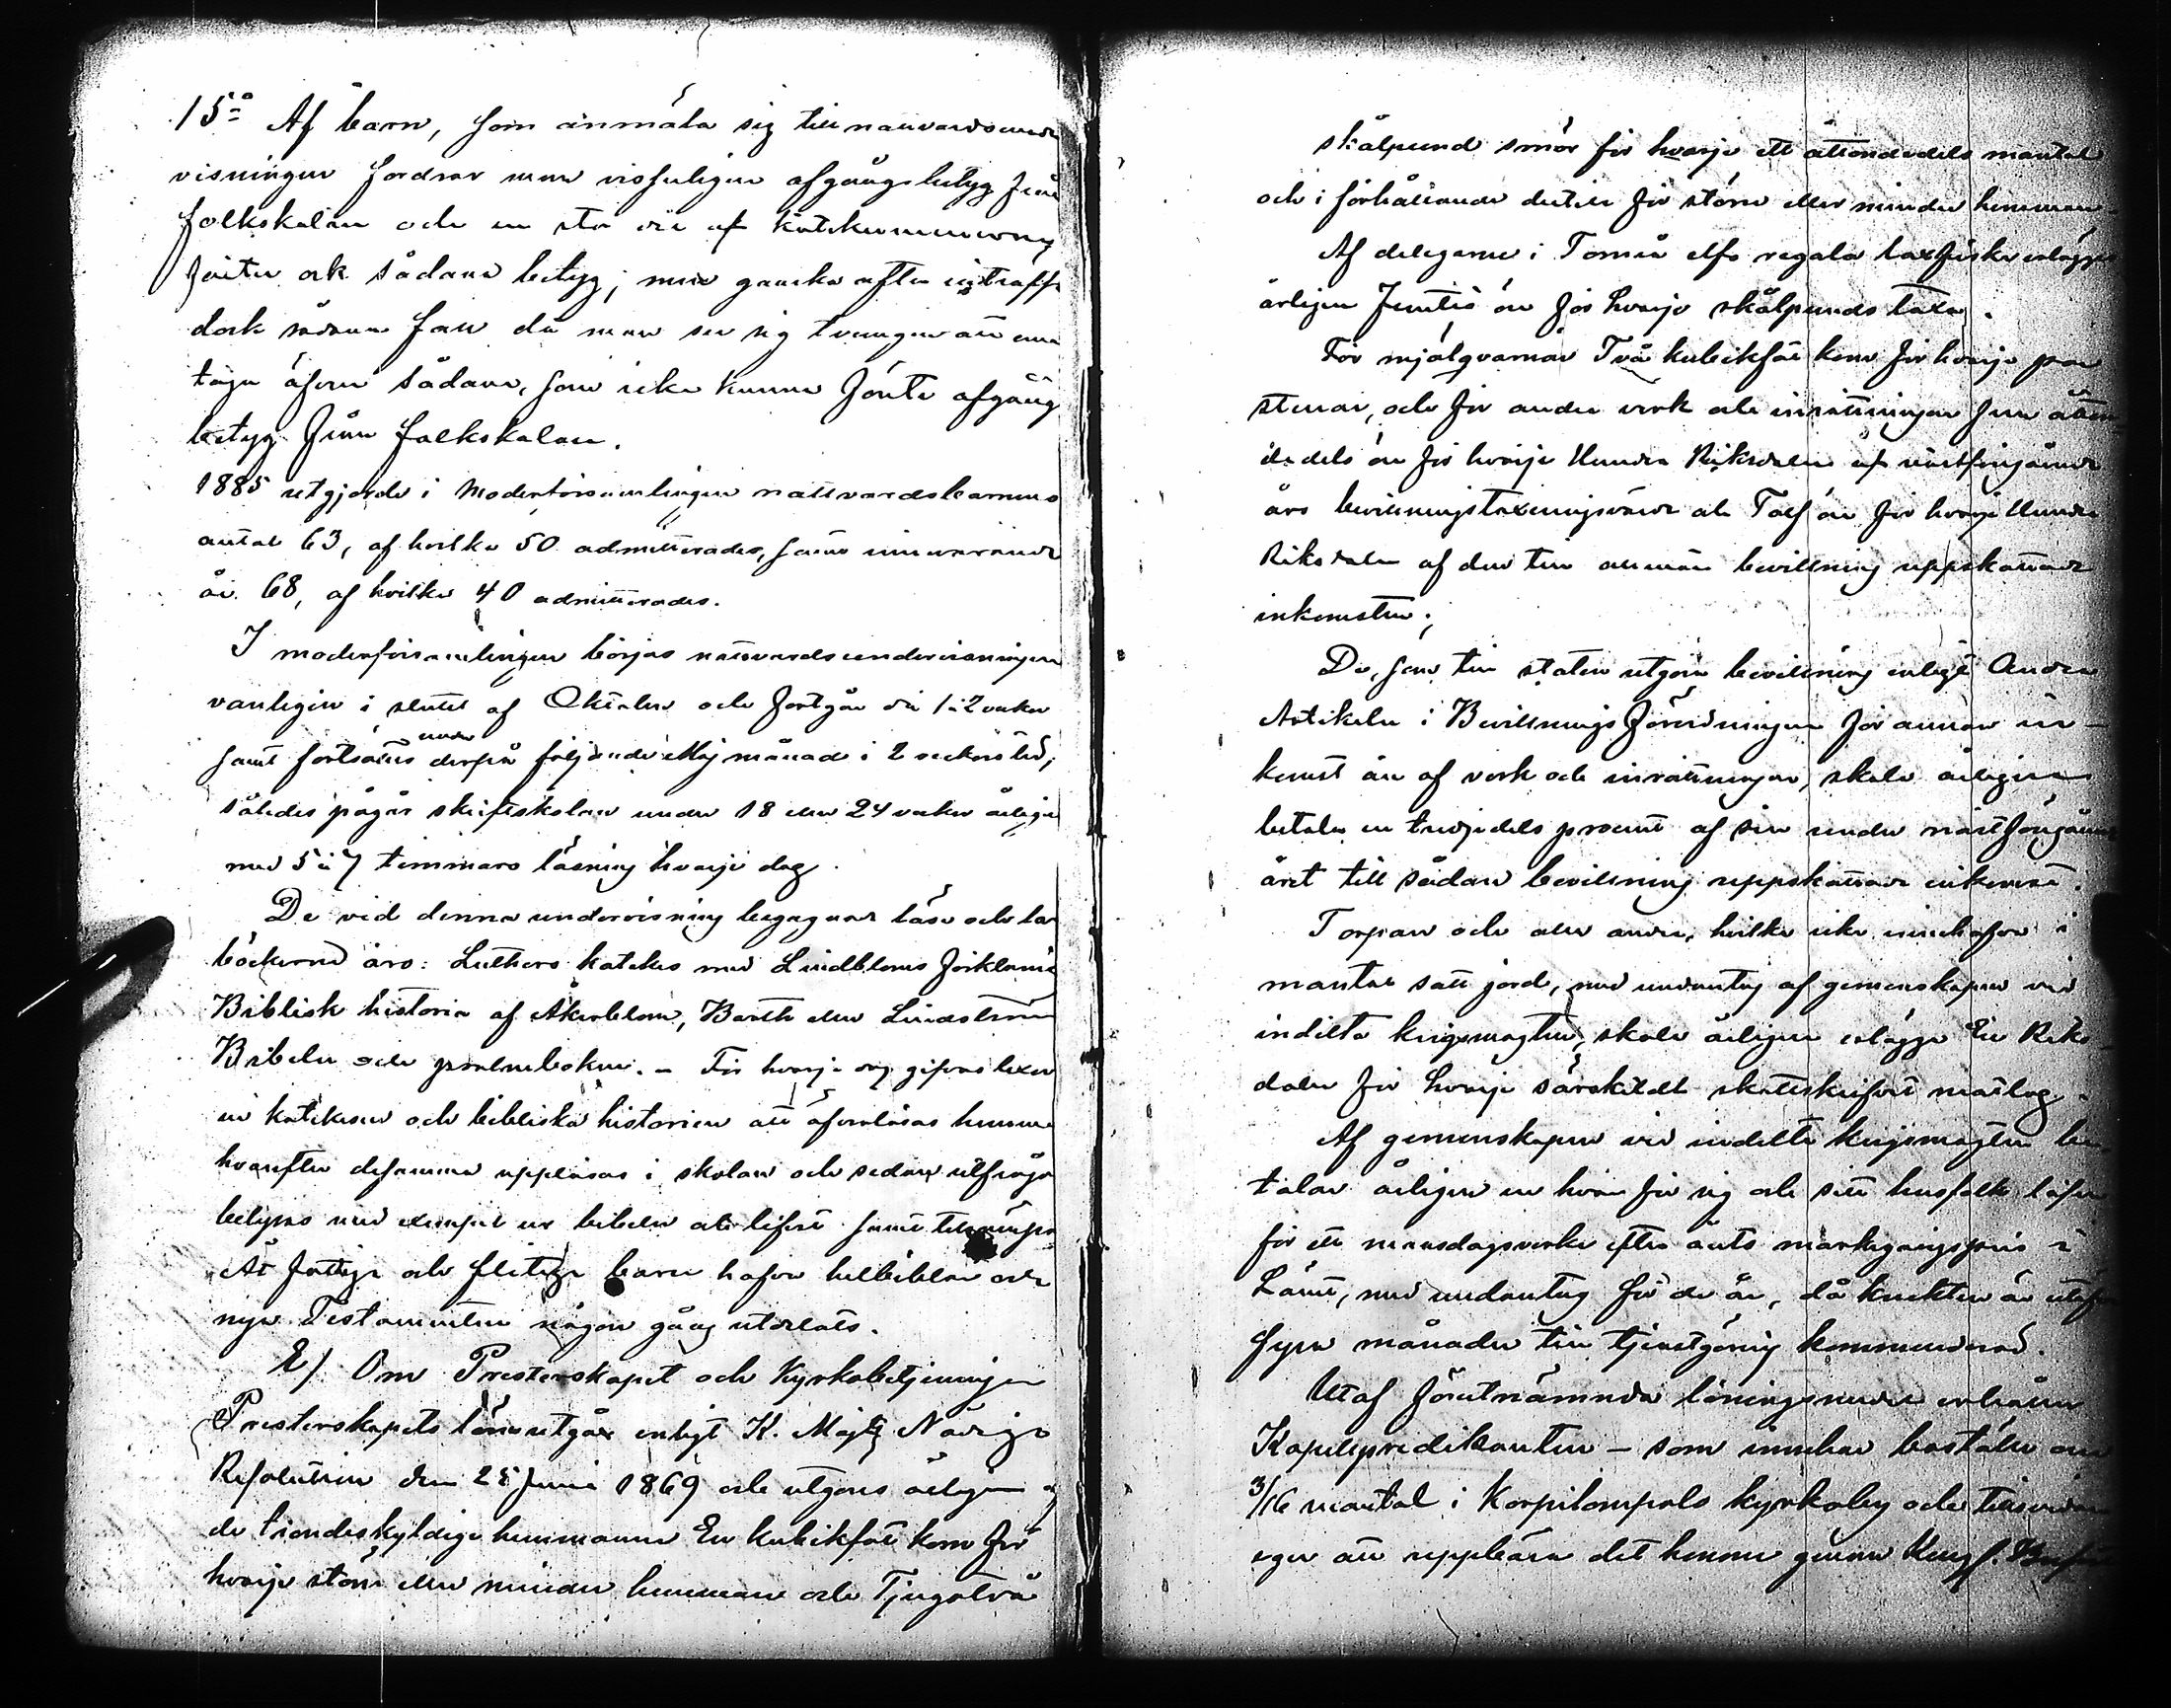 15:o Af barn, som anmäla sig till nattvardsunder
visningen fordrar man visserligen afgångsbetyg från
folkskolan och en stor del af katekumenerne
förete ock sådana betyg; men ganska ofta inträffa
dock sådana fall då man ser sig tvungen att emot
taga äfven sådana, som icke kunna förete afgångs
betyg från folkskolan.
1885 utgjorde i Moderförsamlingen nattvardsbarnens
antal 63, af hvilka 50 admitterades, samt innevarande
år 68, af hvilka 40 admitterades.
I moderförsamlingen börjas nattvardsundervisningen
vanligen i slutet af Oktober och fortgår då 1 à 2 veckor
samt fortsättes under derpå följande Maj månad i 2 veckors tid,
således pågår skriftskolan under 18 eller 24 veckor årligen
med 5 à 7 timmars läsning hvarje dag.
De vid denna undervisning begagnade läse och läro
böckerna äro: Luthers katekes med Lindbloms förklaring
Biblisk historia af Åkerblom, Barth eller Lindström
Bibeln och psalmboken. – För hvarje dag gifvas lexor
ur katekesen och bibliska historien att öfverläsas hemma
hvarefter desamma uppläsas i skolan och sedan utfrågas
belysas med exempel ur bibeln och lifvet samt tillämpas
Åt fattiga och flitiga barn hafva helbiblar och
nya Testamenten någon gång utdelats.
E/. Om Presterskapet och Kyrkobetjeningen
Presterskapets lön utgår enligt K. Majts Nådiga
Resolution den 25 Juni 1869 och utgöres årligen af
de tiondeskyldige hemmanen En kubikfot korn för
hvarje större eller mindre hemman och Tjugotvå
skålpund smör för hvarje ett åttondedels mantal
och i förhållande dertill för större eller mindre hemman.
Af delegarne i Torneå elfs regala laxfiske erlägges
årligen Femtio öre för hvarje skålpunds taxa.
För mjölqvarnar Två kubikfot korn för hvarje par
stenar, och för andra verk och inrättningar Fem åtton
dedels öre för hvarje Hundra Riksdaler af nästföregående
års bevillningstaxeringsvärde och Tolf öre för hvarje Hundra
Riksdaler af den till allmän bevillning uppskattade
inkomsten;
De, som till staten utgöra bevillning enligt Andra
Artikeln i Bevillnings Förordningen för annan in-
komst än af verk och inrättningar, skola årligen
betala en tredjedels procent af sin under nästföregående
året till sådan bevillning uppskattade inkomst.
Torpare och alla andra, hvilka icke innehafva i
mantal satt jord, med undantag af gemenskapen vid
indelta krigsmagten, skola årligen erlägga En Riks
daler för hvarje särskildt skattskrifvet matlag.
Af gemenskapen vid indelta krigsmagten be
talar årligen en hvar för sig och sitt husfolk lösen
för ett mansdagsverke efter årets markegångspris i
Länet, med undantag för de år, då knekten är utöfver
fyra månader till tjenstgöring kommenderad.
Utaf förutnämnda löningsmedel erhåller
Kapellpredikanten – som innehar boställe om
3/16 mantal i Korpilompolo kyrkoby och tillsvidare
eger att uppbära det honom genom Kungl.